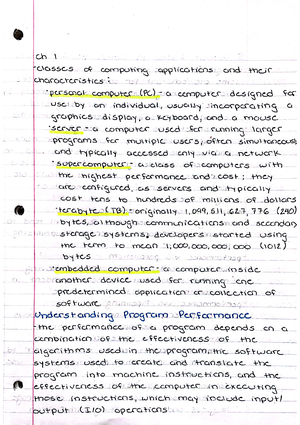 Ch 1
-classes of computing applications and their
characteristics:
·personal computer (PC)- a computer designed for
use by an individual, usually incorporating a
graphics display, a keyboard, and a mouse
·server- a computer used for running larger
programs for multiple users, often simultaneous
and typically accessed only via a network
·supercomputer- a class of computers with
the highest performance and cost; they
are configured as servers and typically
cost tens to hundreds of millions of dollars
·terabyte (TB)- originally 1,099,511,627,776 (240)
bytes, although communications and secondary
storage systems, developers started using
the term to mean 1,000,000,000,000 (1012)
bytes
·embedded computer- a computer inside
another device used for running one
predetermined application or collection of
software
Understanding Program Performance
-the performance of a program depends on a
combination of the effectiveness of the
algorithms used in the program, the software
systems used to create and translate the
program into machine instructions, and the
effectiveness of the computer in executing
those instructions, which may include input/
output (I/O) operations